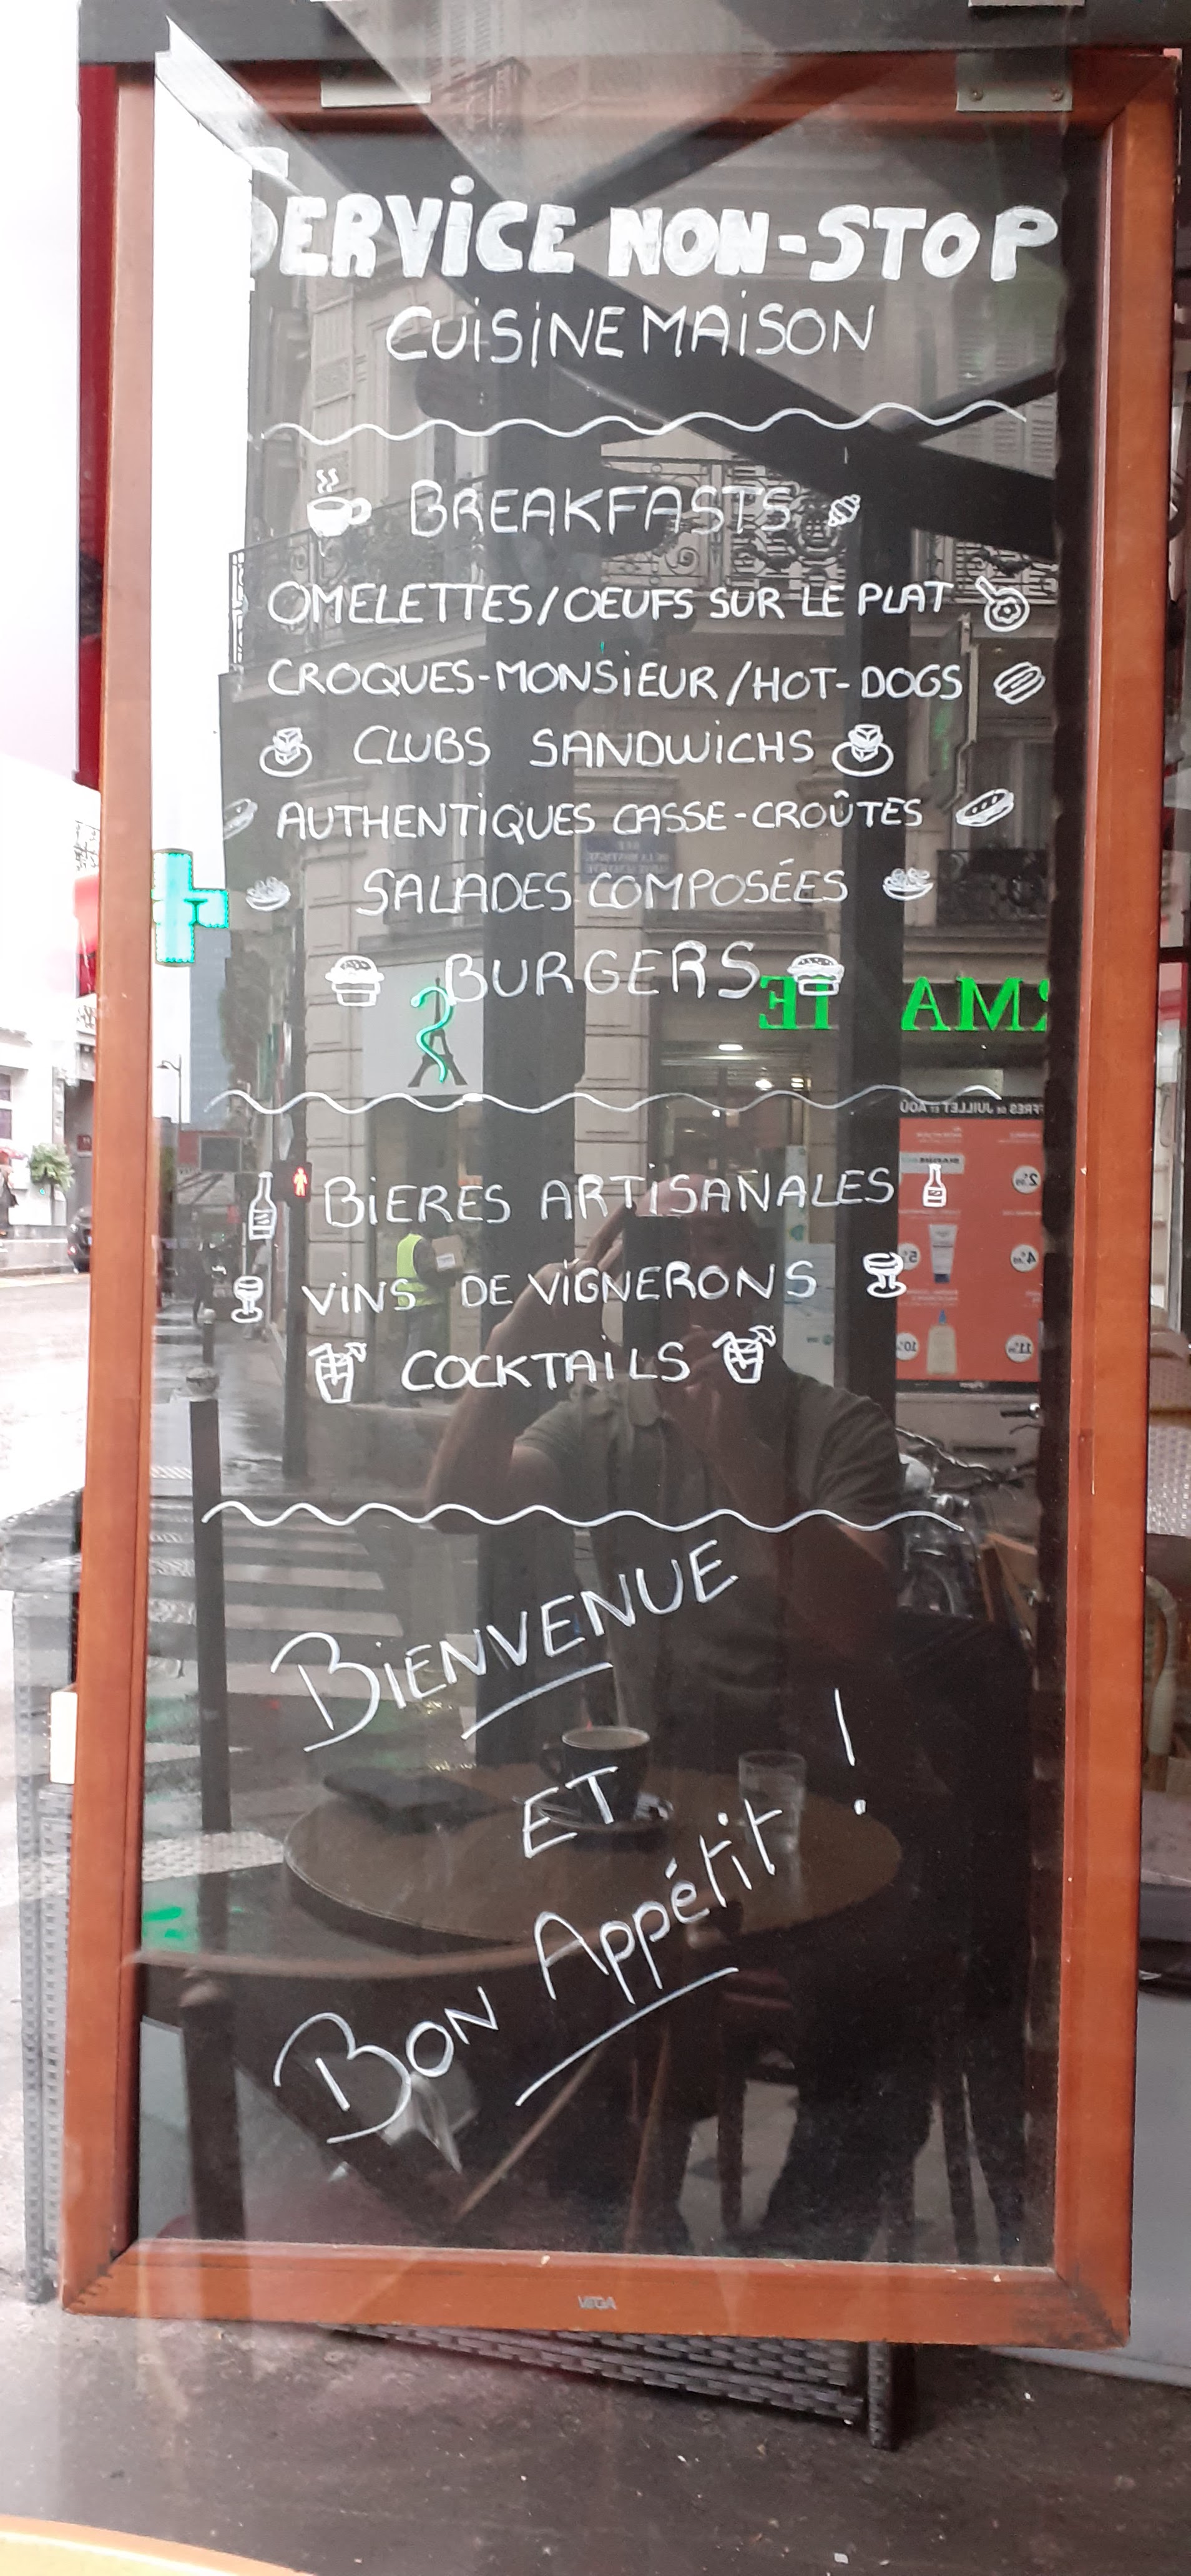 SERVICE NON-STOP
CUISINE MAISON
BREAKFASTS
OMELETTES/OEUFS SUR LE PLAT
CROQUES-MONSIEUR/HOT-DOGS
CLUBS SANDWICHS
AUTHENTIQUES CASSE-CROÛTES
SALADES COMPOSÉES
BURGERS
BIERES ARTISANALES
VINS DE VIGNERONS
COCKTAILS
BIENVENUE
ET
BON Appétit !
VEGA